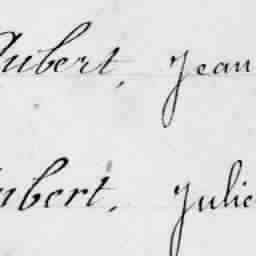 Aubert, Jean
Aubert, Julie